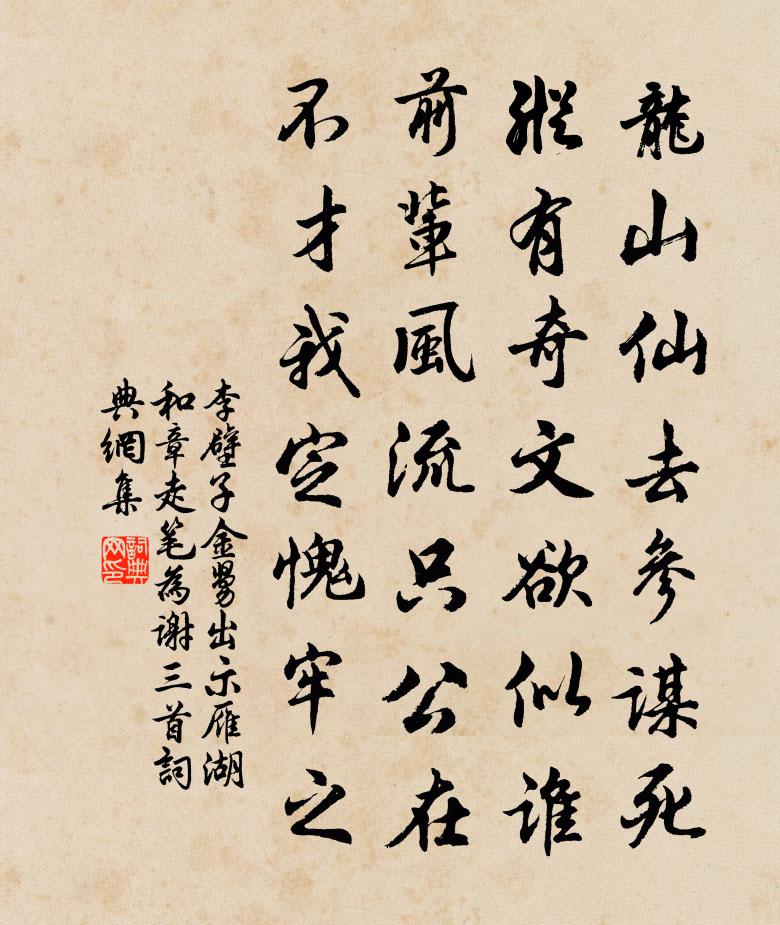 龍山仙去參謀死
縱有奇文欲似誰
前輩風流只公在
不才我定愧牢之
李壁子金男出示雁湖
和章走笔為谢三首詞
典網集
詞典
网印